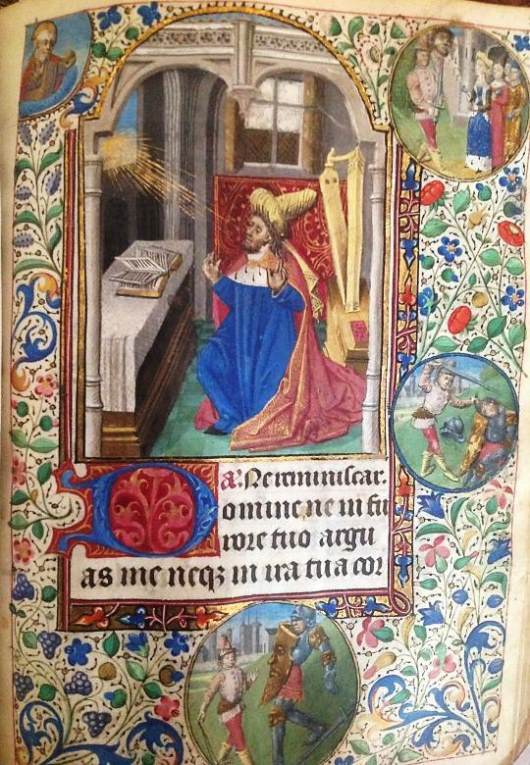 a: Ne reminiscar.
Domine ne in fu
rore tuo argu
as me neqz in ira tua cor